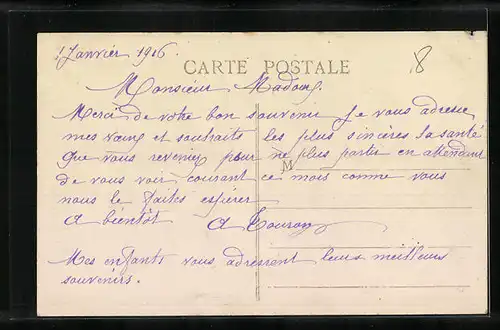 1 Janvier 1916
CARTE POSTALE
8
Monsieur
Merci de votre bon souvenir je vous adresse
mes vœux et souhaits les plus sincères la santé
que vous reveniez pour ne plus partir en attendant
M
de vous voir courant ce mois comme vous
nous le faites espérer
A bientôt A
Mes enfants vous adressent leurs meilleurs
souvenirs.